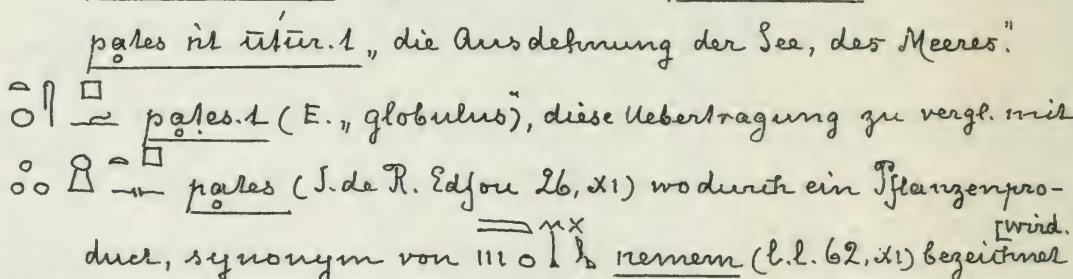 pates nt utur.t „die Ausdehnung der See, des Meeres."
pates.t (E. „globulus"), diese Uebertragung zu vergl. mit
pates (J. de R. Edfou 26, XI) wodurch ein Pflanzenpro-
[wird.
duct, synonym von nemem (l.l. 62, XI) bezeichnet